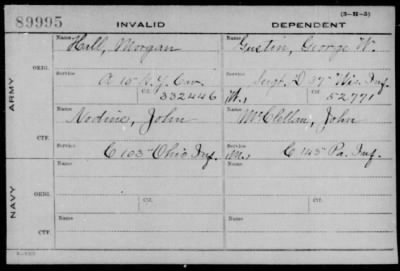 (3-H-5)
89995 INVALID DEPENDENT
ARMY
NAVY
ORIG.
Name Hall, Morgan
Service A 15 N.Y. Cav.
Ctf. 332446
Name Gustin, George W.
Service Sergt. D 37" Wis. Inf.
W., Ctf. 52771
CTF.
Name Nodine, John
Service C 103 Ohio Inf.
Name McClellan, John
Service M., C 145 Pa. Inf.
ORIG.
Name
Service
Ctf.
Name
Service
Ctf.
CTF.
Name
Service
Name
Service